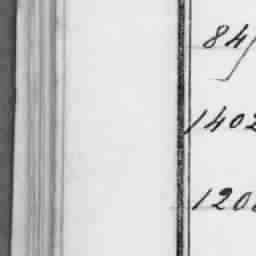 84
1402
120